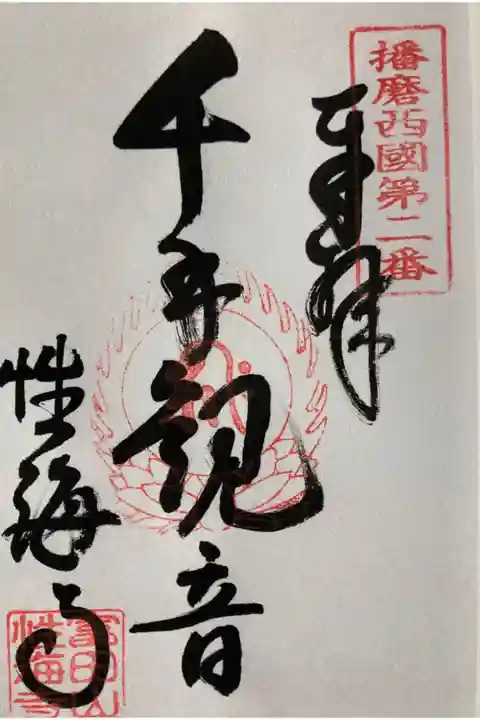 播磨西國第二番
奉拝
千手観音
性海寺
富田山
性海寺